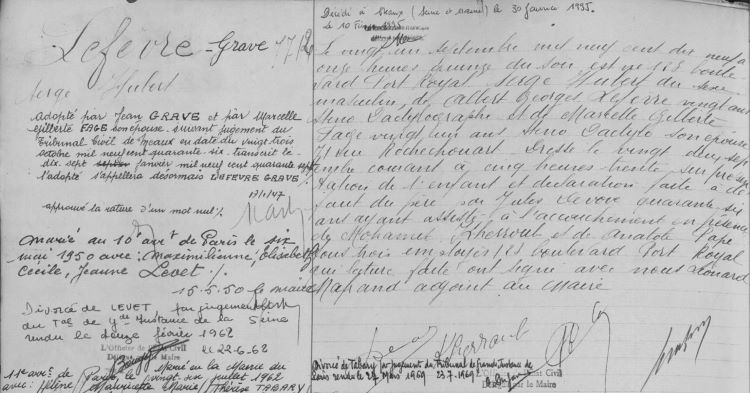 Lefèvre-Grave
Serge Hubert
adopté par Jean GRAVE et par Marcelle
Gilberte FAGE son épouse suivant jugement du
Tribunal Civil de Meaux en date du vingt trois
octobre mil neuf cent quarante-six transcrit le
dix sept janvier mil neuf cent quarante sept
l'adopté s'appellera désormais LEFEVRE GRAVE
17/1/47
approuvé la rature d'un mot nul ./.
marié au 10e arrt de Paris le six
mai 1950 avec : Maximilienne, Elisabeth
Cecile, Jeanne Levet ./.
15.5.50 le maire
Divorcé de LEVET par jugement
du Tal de gde Instance de la Seine
rendu le douze février 1962
le 22-6-62
L'Officier de l'Etat Civil
Délégué par le Maire
Marié en la Mairie du
11e arrt de Paris, le vingt six juillet 1962
avec: Hélène Mauricette Marie Thérèse TABARY
Décédé à Meaux (Seine et Marne) le 30 Janvier 1995.
Le 10 Février 1995
Le vingt un septembre mil neuf cent dix neuf à
onze heures quinze du soir est né 123 boule
vard Port Royal Serge Hubert du sexe
masculin, de Albert Georges Lefèvre vingt ans
steno dactylographe et de Marcelle Gilberte
Fage vingt un ans steno dactylo son épouse
71 rue Rochechouart Dressé le vingt deux septem
bre courant à cinq heures trente sur présen
tation de l'enfant et déclaration faite à dé
faut du père par Jules quarante six
ans ayant assisté à l'accouchement en présence
de Mohamet et de Anatole Pape
tous trois employés 123 boulevard Port Royal
qui lecture faite ont signé avec nous Léonard
adjoint au Maire
Divorcé de Tabary par jugement du Tribunal de Grande Instance de
Paris rendu le 27 Mars 1969 23.7.1969
L'Officier de l'Etat Civil
Délégué par le Maire